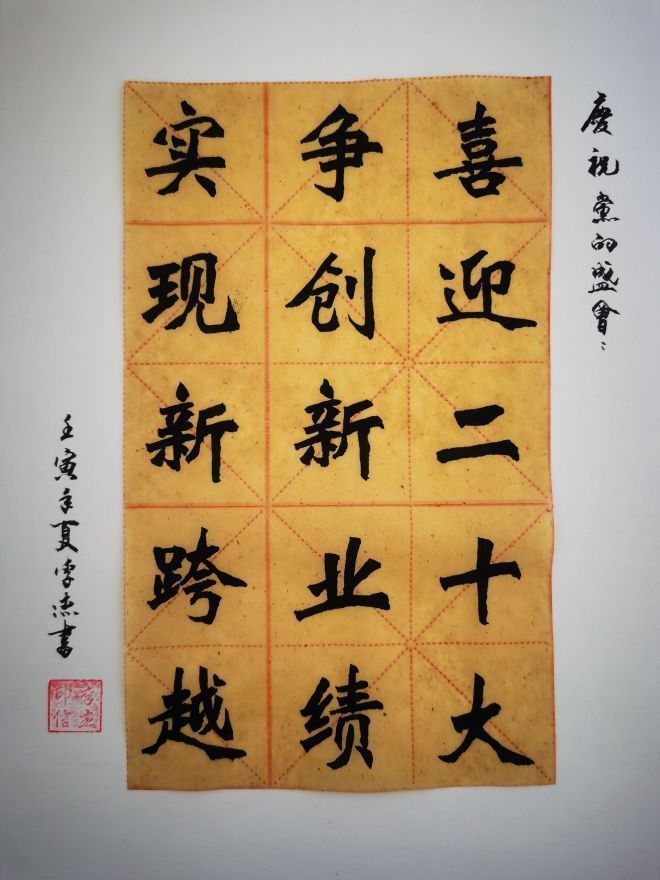 庆祝党的盛會:
喜迎二十大
争创新业绩
实现新跨越
壬寅年夏李杰書
李杰
印信